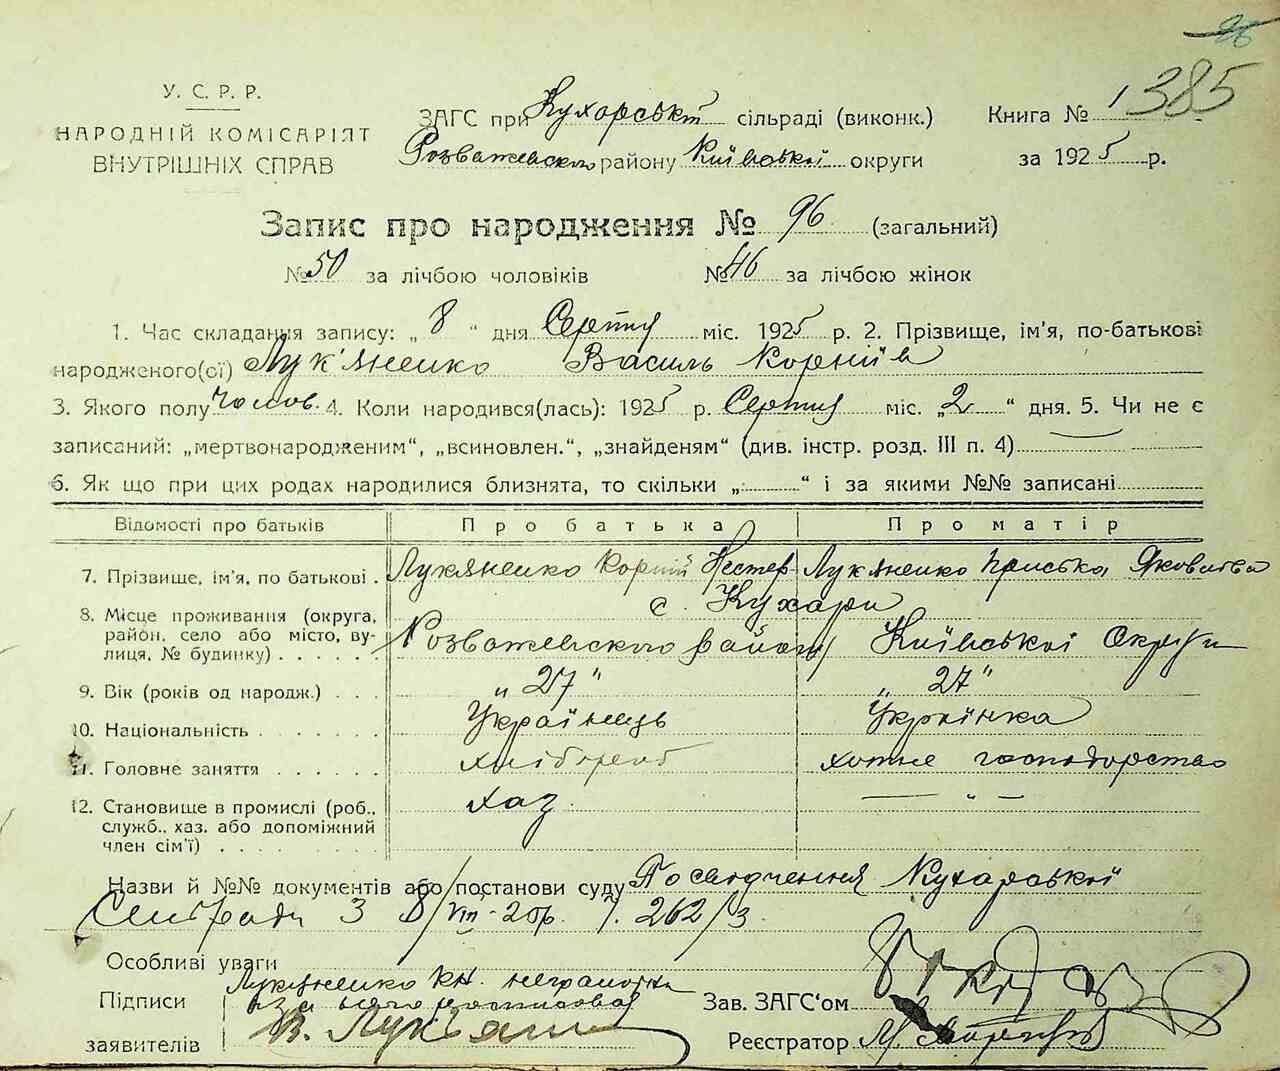 385
У. С. Р. Р.
НАРОДНІЙ КОМІСАРІЯТ
ВНУТРІШНІХ СПРАВ
ЗАГС при Кухарськ сільраді (виконк.)
Розважевского району Київської округи
Книга №
за 1925 р.
Запис про народження № 96 (загальний)
№ 50 за лічбою чоловіків № 46 за лічбою жінок
1. Час складання запису: „ 8 “ дня Серпня міс. 1925 р. 2. Прізвище, ім'я, по-батькові
народженого(ої) Лук'яненко Василь Корніїв
3. Якого полу Чолов. 4. Коли народився(лась): 1925 р. Серпня міс. „2“ дня. 5. Чи не є
записаний: „мертвонародженим“, „всиновлен.“, „знайденям“ (див. інстр. розд. III п. 4)
6. Як що при цих родах народилися близнята, то скільки „ “ і за якими №№ записані
Відомості про батьків Про батька Про матір
7. Прізвище, ім'я, по батькові . Лукяненко Корній Нестер Лук'яненко Приська Яковлева
с. Кухари
8. Місце проживання (округа,
район, село або місто, ву-
лиця, № будинку) . . . . . . Розважевского району Київської Округи
9. Вік (років од народж.) . . . „ 27 “ „ 27 “
10. Національність . . . . . . . Українець Українка
11. Головне заняття . . . . . . хлібороб хатнє господарство
12. Становище в промислі (роб.,
служб., хаз. або допоміжний
член сім'ї) . . . . . . . . . хаз. — „ —
Назви й №№ документів або постанови суду Посвідчення Кухарської
Сільради З 8/VIII-25р. 262/3.
Особливі уваги
Лукяненко КН. неграмотн
Підписи
заявителів
В. Лукьян
Зав. ЗАГС'ом
Реєстратор